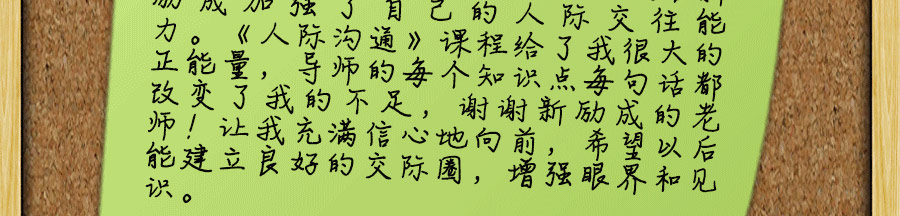 励成加强了自己的人际交往能
力。《人际沟通》课程给了我很大的
正能量，导师的每个知识点每句话都
改变了我的不足，谢谢新励成的老
师！让我充满信心地向前，希望以后
能建立良好的交际圈，增强眼界和见
识。